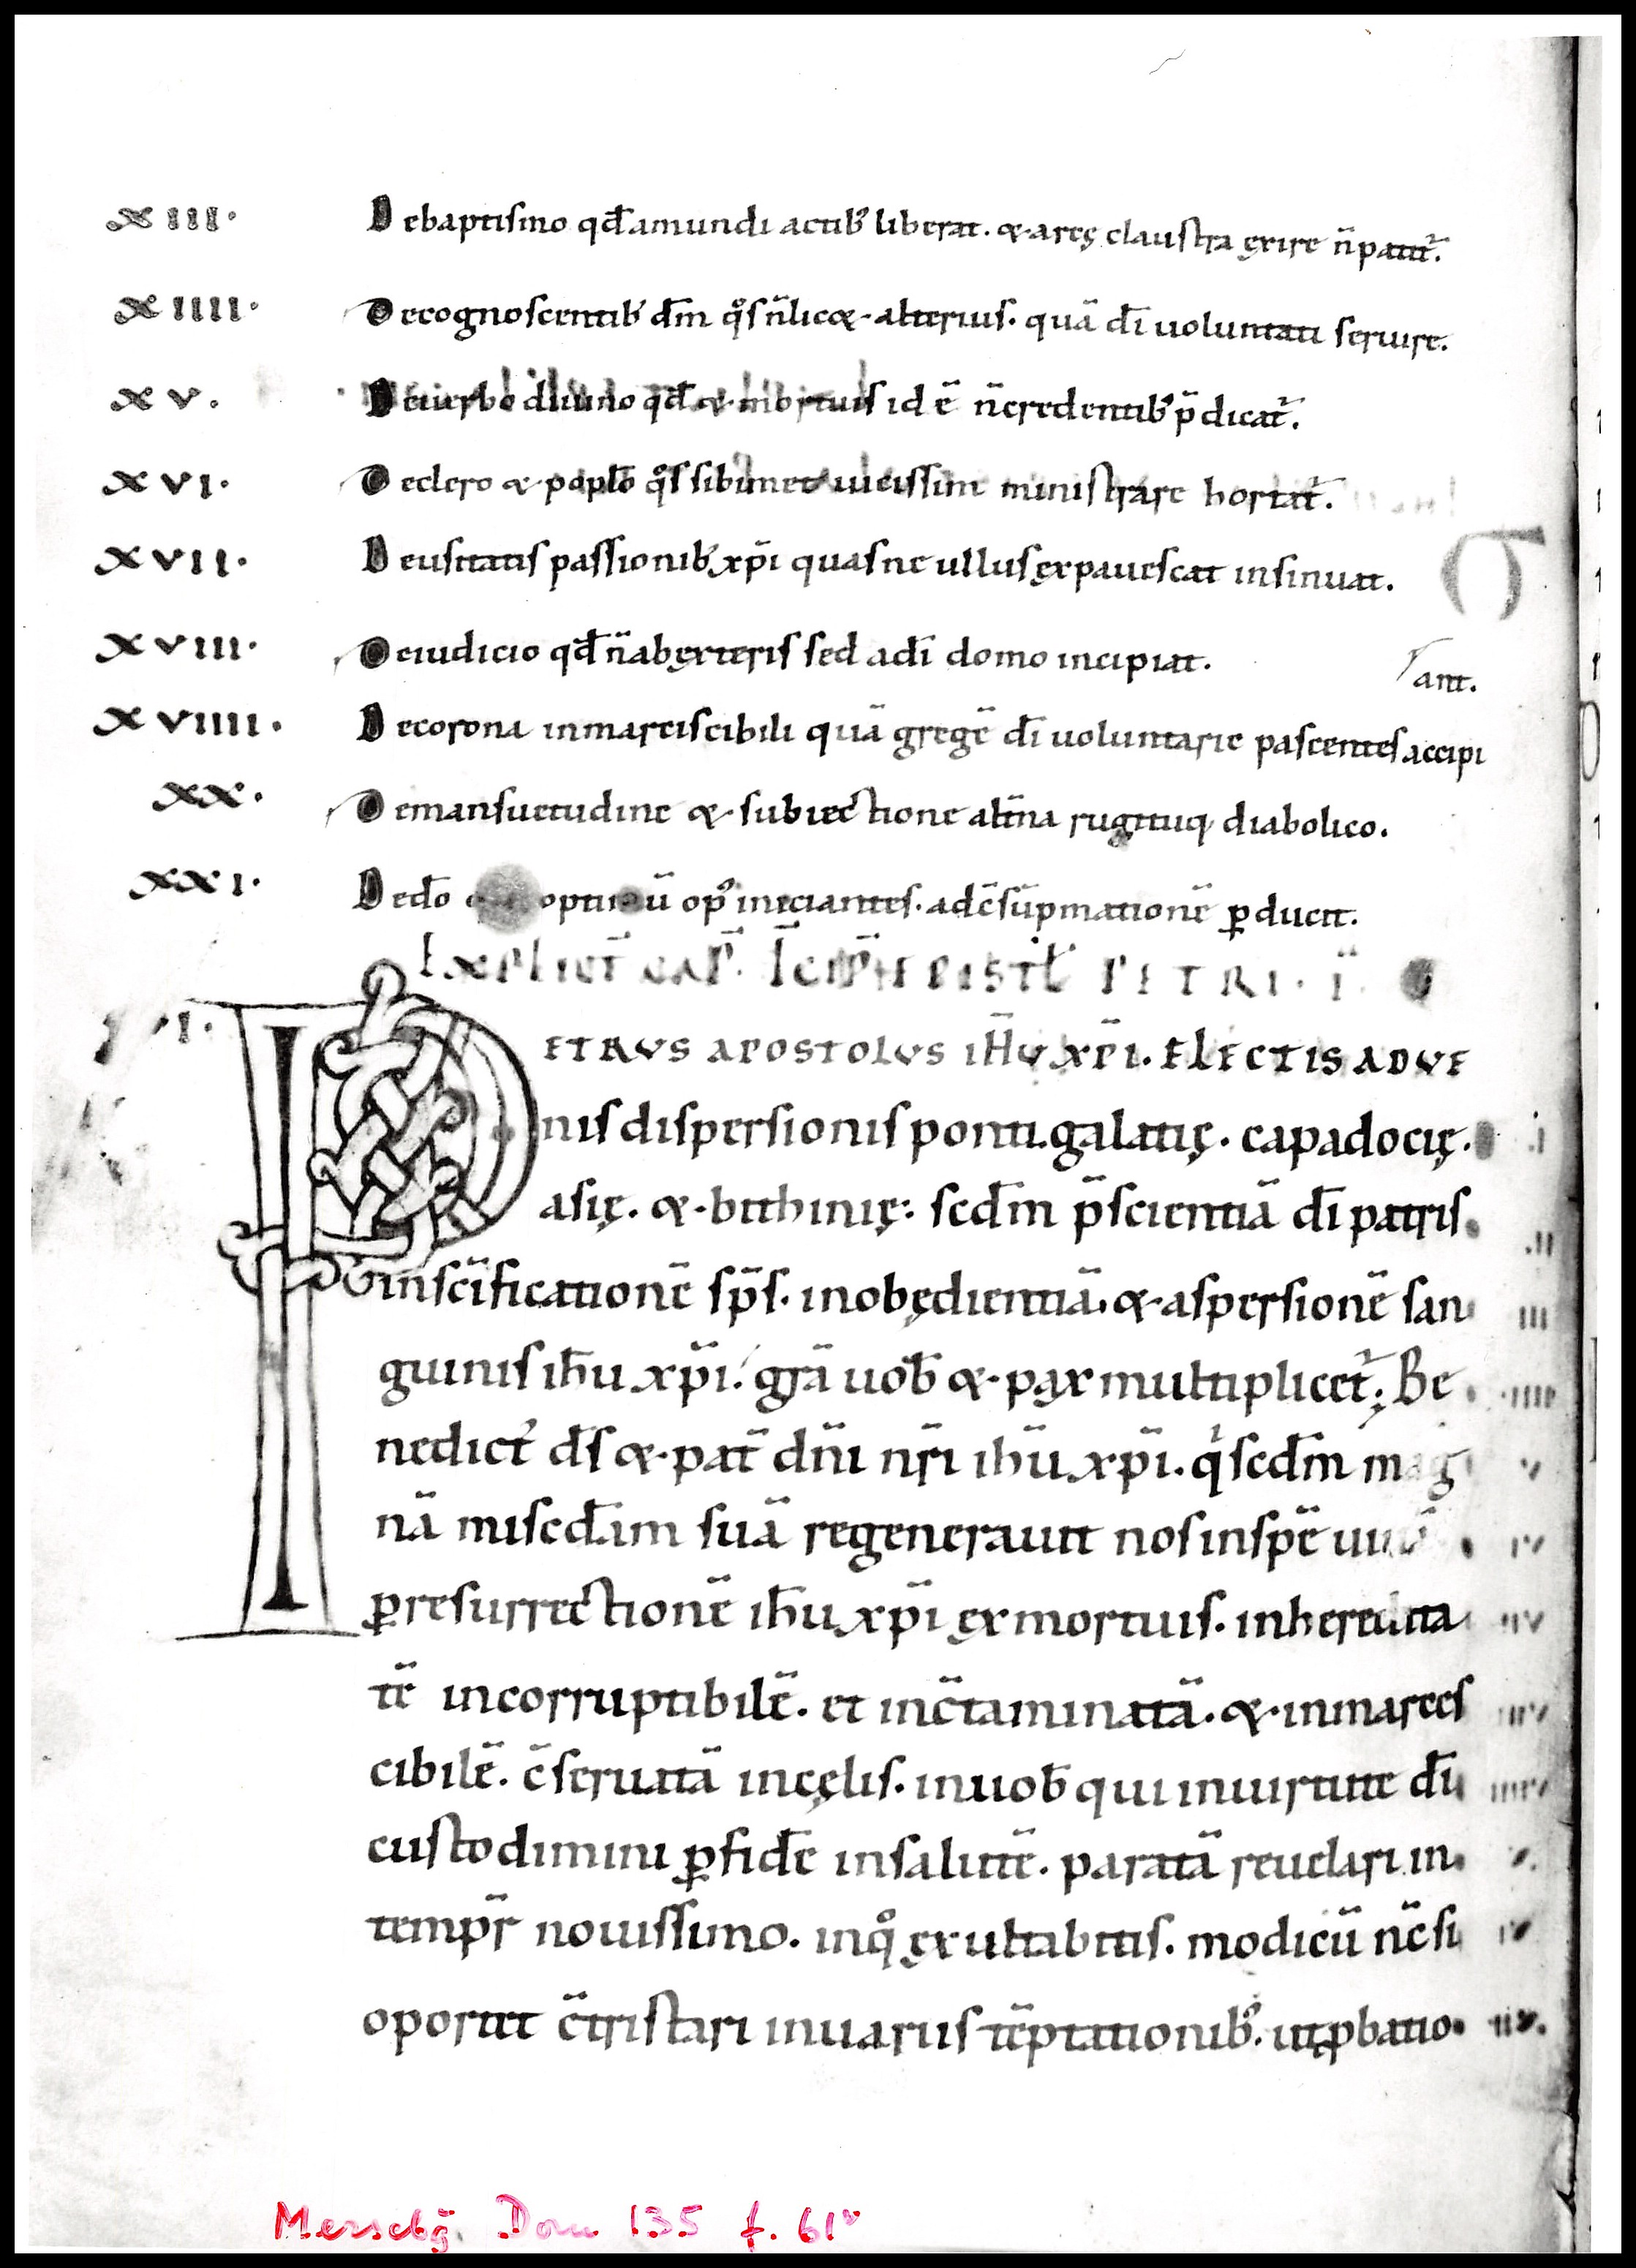 XIII. De baptismo qđ a mundi actib; liberat. & arcę claustra ęxire n̄ patit̄.
XIIII. De cognoscentib; dm̄ qͦs n̄ licæ alterius. quā dī uoluntati seruire.
XV. De uerbo diuino qđ & mortuis id ē n̄ credentib; p̄dicat̄.
XVI. De clero & poplō qͦs sibimet uicissim ministrare hortat̄.
XVII. De usitatis passionib; xp̄i quas ne ullus ęxpauescat insinuat.
XVIII. De iudicio qđ n̄ ab ęxteris sed a dī domo incipiat.
ant.
XVIIII. De corona inmarciscibili quā gregē dī uoluntarie pascentes accipi
XX. De mansuetudine & subiectione alt̄na rugituq; diabolico.
XXI. De dō op; iniciantes. ad c̄sūpmationē ꝑducit.
EXPLICIT̄ CAP̄. INCIP̄IT EPISTL̄ PETRI. I.
PETRVS APOSTOLVS IHŪ XP̄I. ELECTIS ADVE
nis dispersionis ponti. galatię. capadocię. i
asię. & bithinię: scdm̄ p̄scientiā dī patris. ii
in sc̄ificationē sp̄s. in obędientiā. & aspersionē san iii
guinis ihū xp̄i. gr̄a uob̄ & pax multiplicet̄. Be iiii
nedict; ds̄ & pat̄ dn̄i nr̄i ihū xp̄i. qⁱ scdm̄ mag v
nā miscdīam suā regenerauit nos in spē uiuā
ꝑ resurrectionē ihū xp̄i ęx mortuis. in heredita
tē incorruptibilē. et inc̄taminatā. & inmarces
cibilē. c̄seruatā in cęlis. in uob̄ qui in uirtute dī
custodimini ꝑ fidē in salutē. paratā reuelari in
tempr̄ nouissimo. in qͦ ęxultabitis. modicū nc̄ si
oportet c̄tristari in uariis tēptationib;. ut ꝓbatio
Mersebg. Dom 135 f. 61v